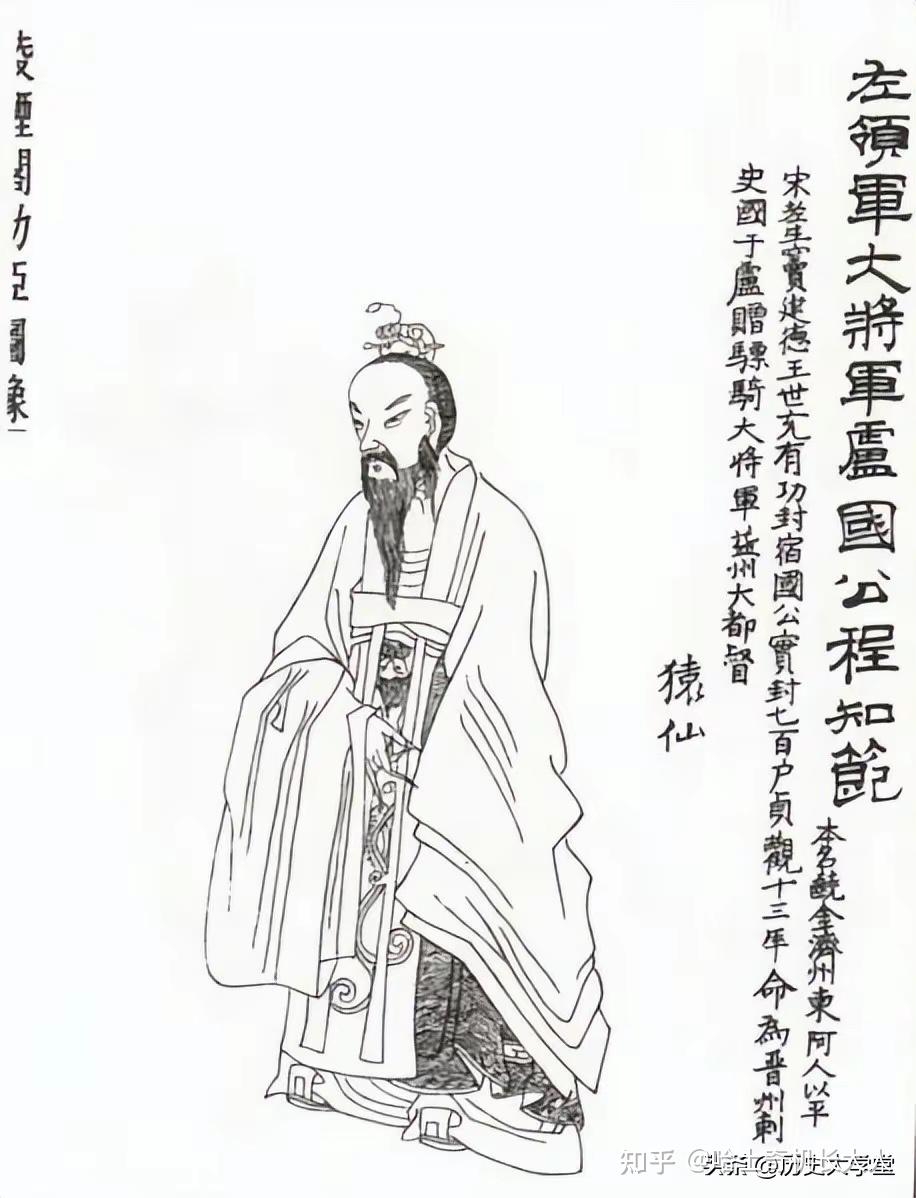 左領軍大將軍盧國公程知節
本名齩金濟州東阿人以平
宋老生竇建德王世充有功封宿國公實封七百户貞觀十三年命為晋州刺
史國于盧贈驃騎大将軍益州大都督
猿仙
凌煙閣功臣圖像
知乎
头条@历史大学堂